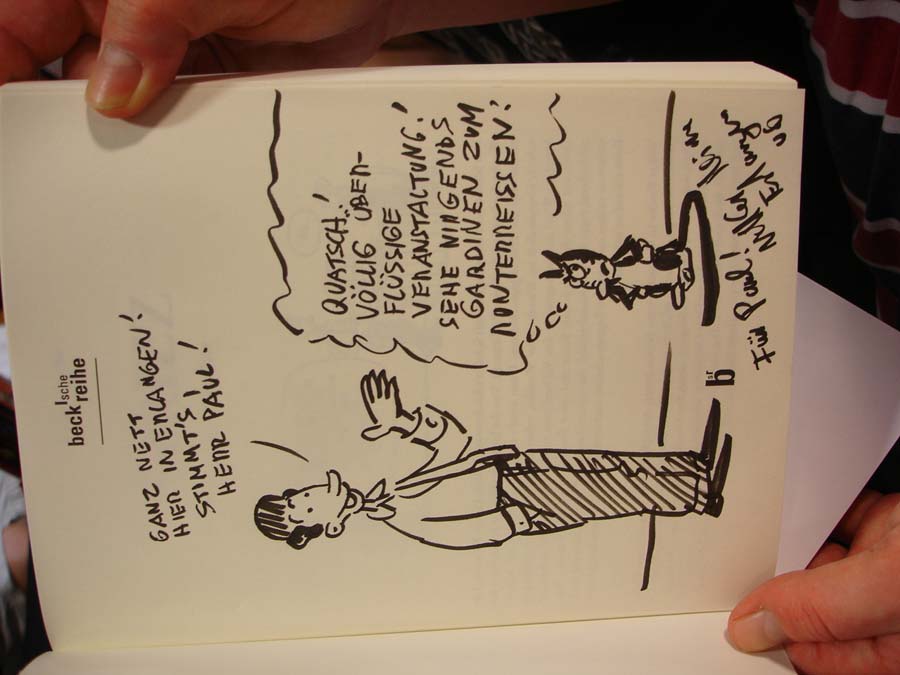 beck'sche
reihe
GANZ NETT
HIER IN ERLANGEN!
STIMMT'S,
HERR PAUL!
QUATSCH!
VÖLLIG ÜBER-
FLÜSSIGE
VERANSTALTUNG!
SEHE NIRGENDS
GARDINEN ZUM
RUNTERREISSEN!
bsr
Für Paul!
Erlangen
08